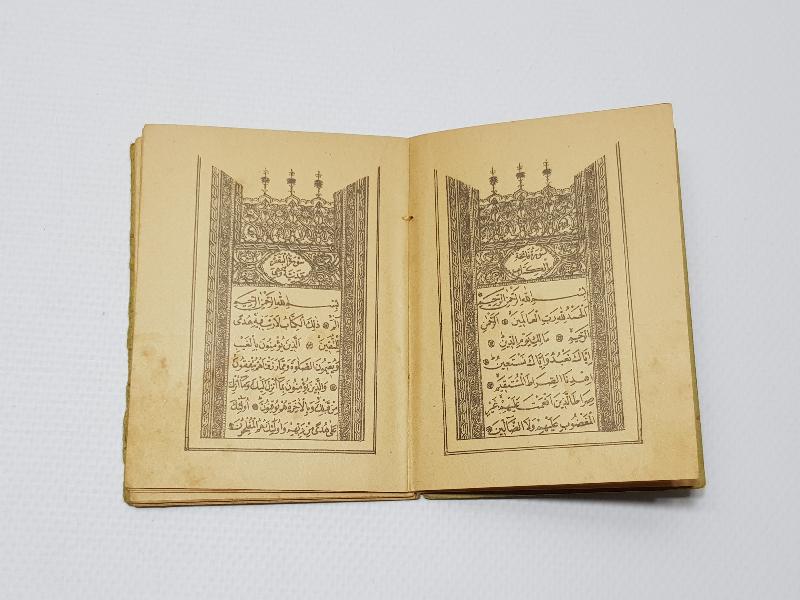 سورة فاتحة
الكتاب
بسم الله الرحمن الرحيم
الحمد لله رب العالمين الرحمن
الرحيم مالك يوم الدين
إياك نعبد وإياك نستعين
اهدنا الصراط المستقيم
صراط الذين أنعمت عليهم غير
المغضوب عليهم ولا الضالين
سورة البقرة
بسم الله الرحمن الرحيم
الم ذلك الكتاب لا ريب فيه هدى
للمتقين الذين يؤمنون بالغيب
ويقيمون الصلوة ومما رزقناهم ينفقون
والذين يؤمنون بما أنزل إليك وما أنزل
من قبلك وبالآخرة هم يوقنون أولئك
على هدى من ربهم وأولئك هم المفلحون